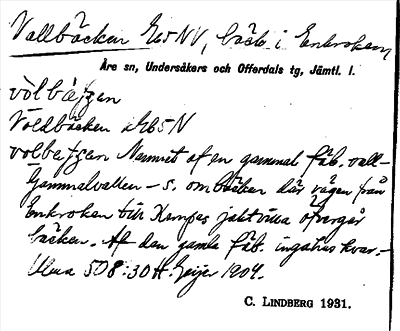 Vallbäcken 265 NV, bäck i Enkroken
Åre sn, Undersåkers och Offerdals tg, Jämtl. l.
vòlbæ̀ʃʒan
Voldbäcken 265 N
vòlbæʃʒan Namnet af en gammal fäb. vall -
Gammalvallen - s. om bäcken där vägen från
Enkroken till Kempes jaktvilla öfvergår
bäcken. Af den gamla fäb. ingahus kvar. -
Ulma 508:30 H. Geijer 1904.
C. LINDBERG 1931.